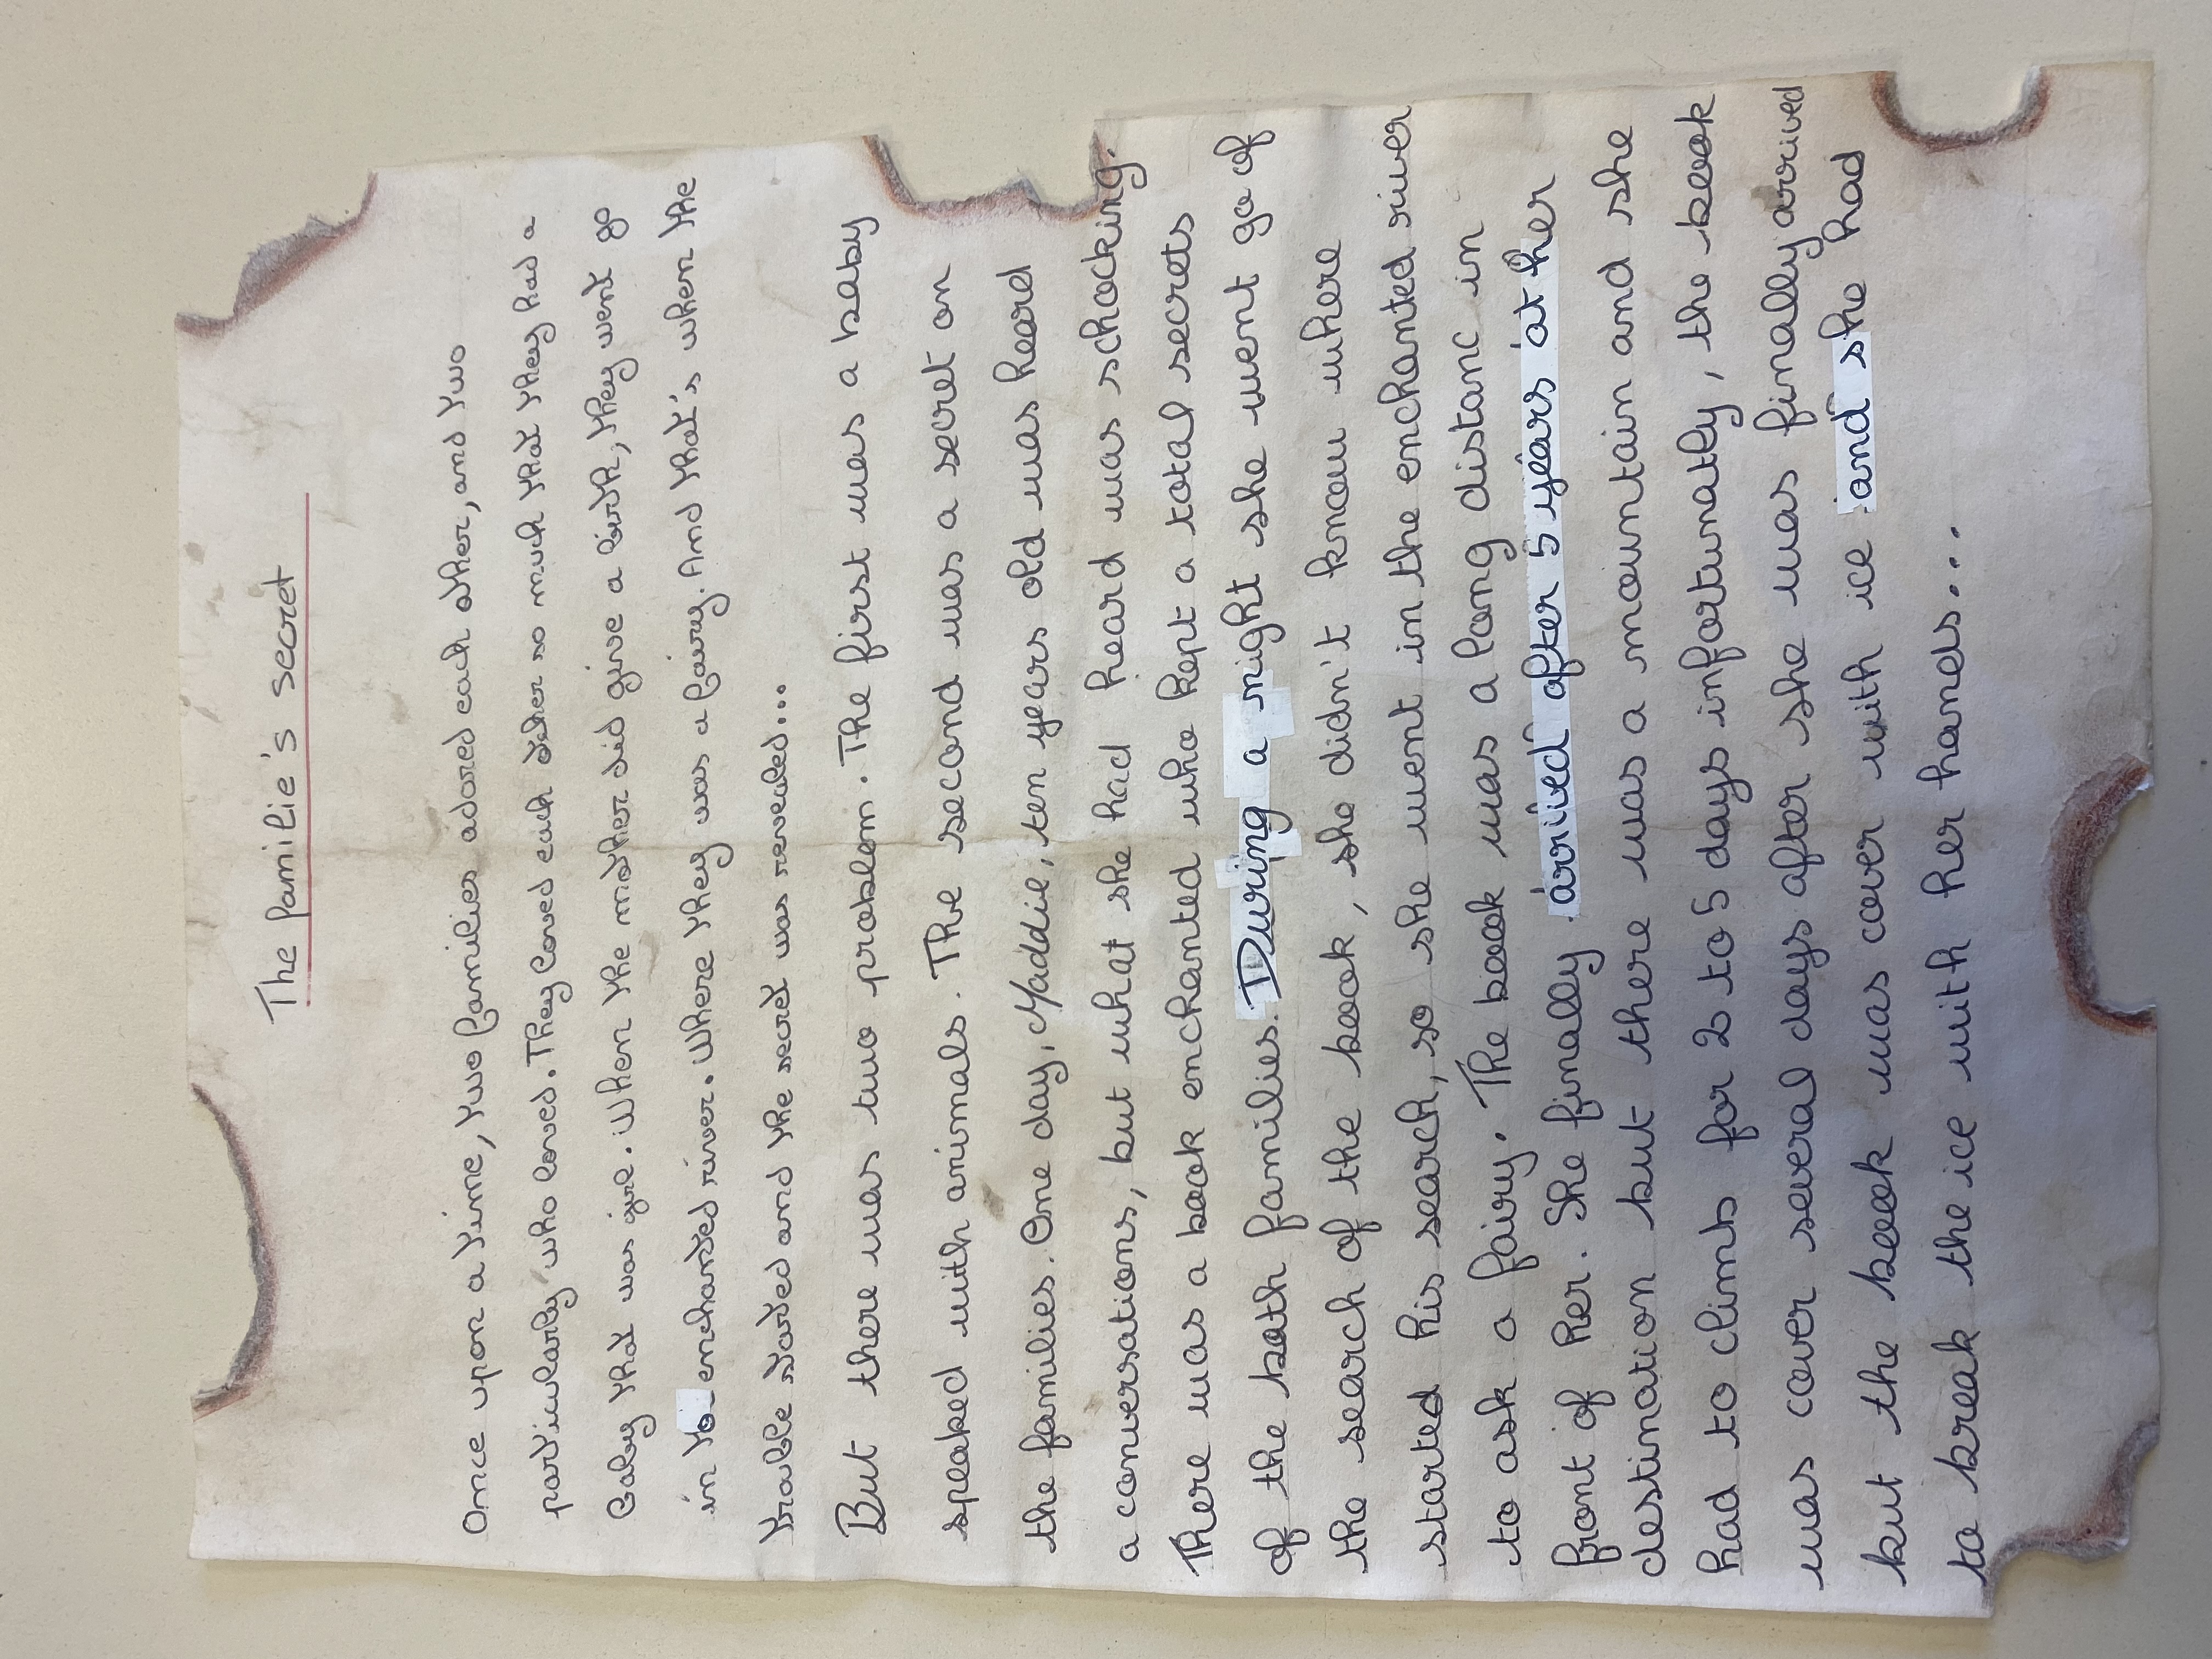 The familie's secret
Once upon a time, two families adored each other, and two
particularly who loved. They loved each other so much that they had a
baby that was girl. When the mother did give a birth, they went go
in to enchanted river. Where they was a fairy. And that's when the
trouble started and the secret was revealed...
But there was two problem. The first was a baby
speaked with animals. The second was a secret on
the families. One day, Maddie, ten years old was heard
a conversations, but what she had heard was schocking.
There was a book enchanted who kept a total secrets
of the both families. During a night she went go of
the search of the book, she didn't know where
started his search, so she went in the enchanted river
to ask a fairy. The book was a long distanc in
front of her. She finally arrived after 5 years at her
destination but there was a mountain and she
had to climb for 2 to 5 days infortunatly, the book
was cover several days after she was finally arrived
but the book was cover with ice and she had
to break the ice with her hands...